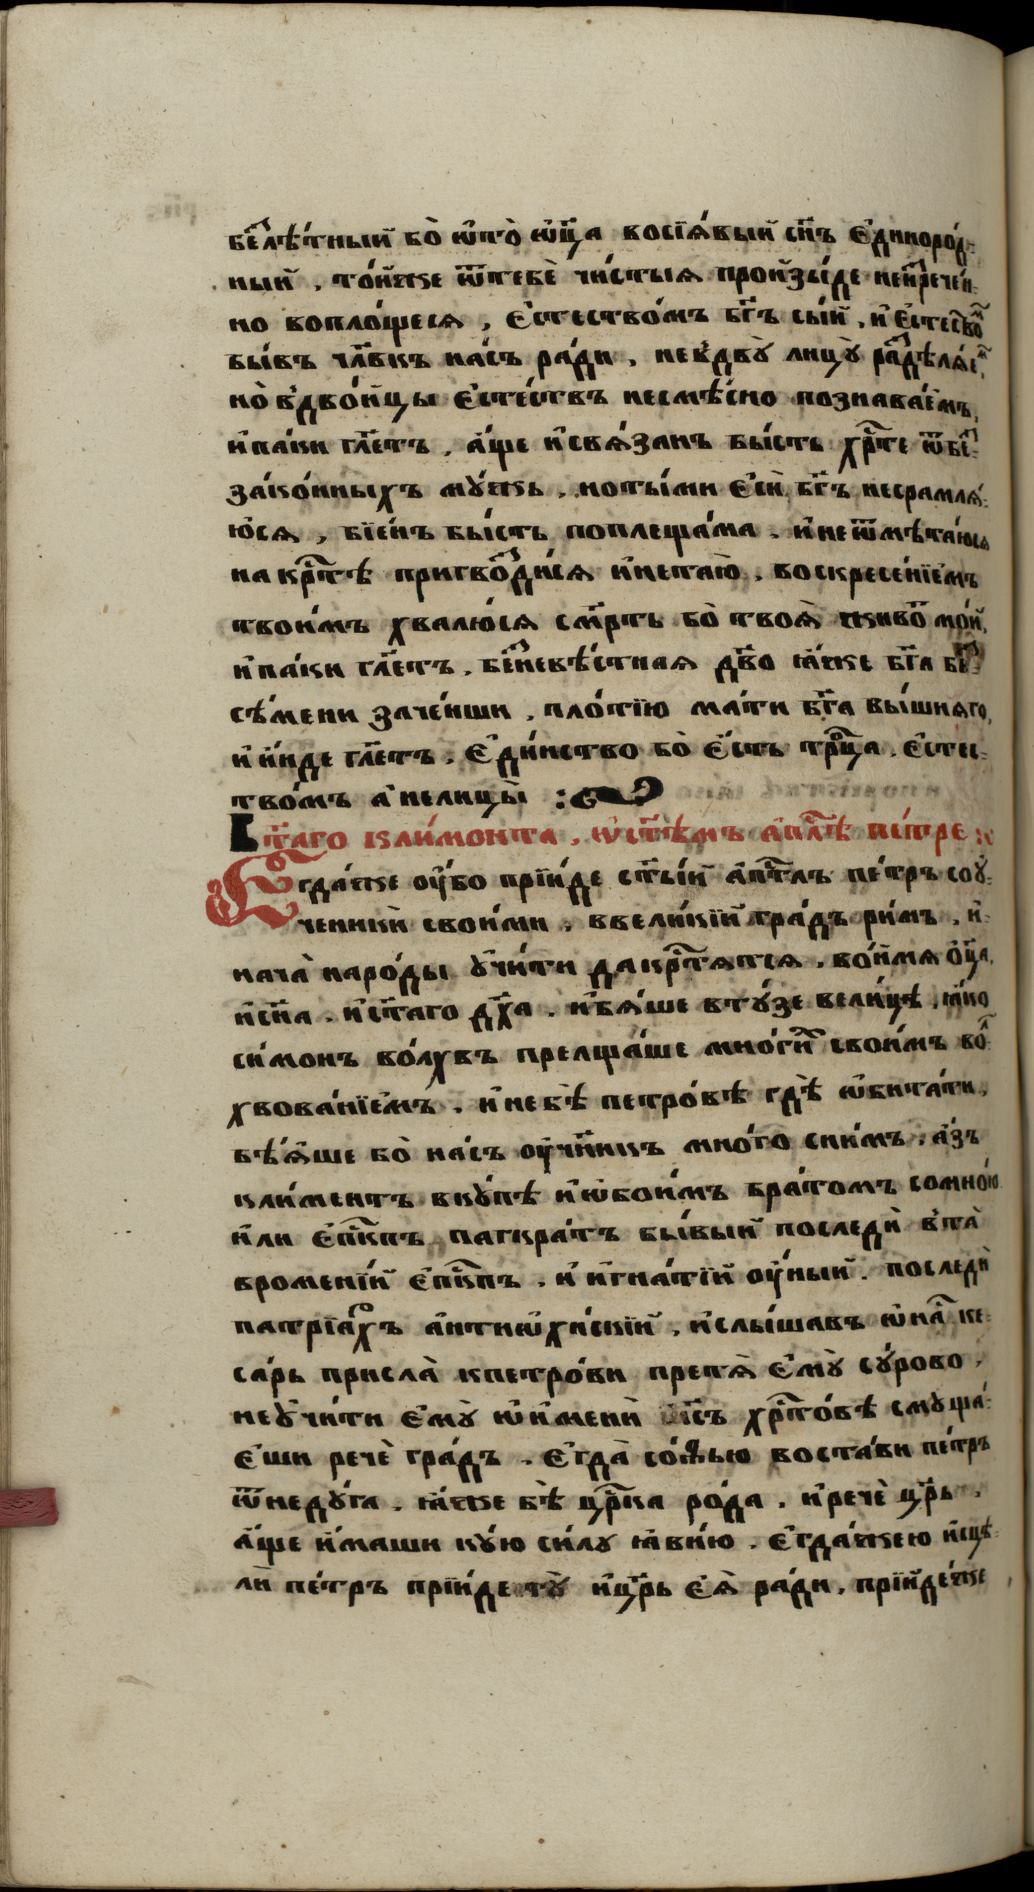 бе᷀лѣ́тный бо̀ ѿто̀ ѡ҆ц҃а восїѧ́вый сн҃ъ є҆диноро́д-
ный , то́йже ѿтебѐ чи́стыѧ произы́де неи҆зрече́н-
но вопло́щесѧ , є҆стество́мъ бг҃ъ сы́й , и҆ є҆стество᷀
бы́въ чл҃вкъ на́съ ра́ди , нев̾двꙋ̀ лицꙋ̀ разⷣѣлѧ́еⷨ,
но̀ в̾дво́йцы є҆сте́ствъ несмѣ́сно познава́емъ,
и҆па́ки гл҃етъ . а҆́ще и҆свѧ́занъ бы́сть хрⷭ҇те ѿбе-
зако́нныхъ мꙋ́жь . ноты́ми є҆сѝ бг҃ъ несрамлѧ́-
юсѧ , бїе́нъ бы́сть поплеща́ма . и҆неѿмѣта́юсѧ
на крⷭ҇тѣ пригво́ⷥдисѧ и҆нетаю̀ . воскресе́нїемъ
твои́мъ хвалю́сѧ см҃рть бо̀ твоѧ̀ живо᷀ мо́й,
и҆па́ки гл҃етъ . бе᷀невѣ́стнаѧ дв҃о ꙗ҆́же бг҃а бе᷀
сѣ́мени заче́нши . пло́тїю ма́ти бг҃а вы́шнѧго,
и҆ и҆́нде гл҃етъ . є҆ди́нство бо̀ є҆́сть трⷪ҇ца . є҆стес-
тво́мъ а҆ нелицы̀ :
Ст҃аго кли́монта , ѡ҆ст҃ѣмъ а҆пⷭ҇лѣ пе́тре :
Єгда́же оу҆́бо прїи́де ст҃ы́й а҆пⷭ҇тлъ пе́тръ соу-
ченикѝ свои́ми , ввели́кїй гра́дъ ри́мъ . и҆
нача̀ наро́ды ᲂучи́ти да крⷭ҇тѧтсѧ . во и҆́мѧ ѻ҆ц҃а,
и҆сн҃а . и҆ст҃аго дх҃а . и҆бѧ́ше втꙋ́зе вели́цѣ , ꙗ҆́ко
си́монъ во́лхвъ прелща́ше мно́гиⷯ свои́мъ во᷀-
хвова́нїемъ . и҆небѣ̀ петро́вѣ гдѣ̀ ѡ҆бита́ти ,
бѣ́ѧше бо̀ на́съ оу҆чн҃икъ мно́го сни́мъ . а҆́зъ
кли́ментъ вкꙋ́пѣ и҆ѡ҆бои́мъ бра́томъ сомно́ю
и҆́ли є҆пⷭ҇кпъ пагкра́тъ бы́вый последѝ в̾та̀
вроме́нїй є҆пⷭ҇кпъ . и҆ и҆гна́тїй оу҆́ный . последѝ
патрїа́рхъ а҆нтиѡ҆хи́скїй . и҆слы́шавъ ѡ҆на́ⷭ ке-
са́рь присла̀ кпетро́ви претѧ̀ є҆мꙋ̀ сꙋ́рово ,
неꙋчи́ти є҆мꙋ̀ ѡ҆и҆́мени і҆с҃ъ хрⷭ҇то́вѣ смꙋща́-
є҆ши речѐ гра́дъ . є҆гда̀ со́фью воста́ви пе́тръ
ѿнедꙋ́га . ꙗ҆́же бѣ̀ црⷭ҇ка ро́да . и҆речѐ цр҃ь ,
а҆́ще и҆́маши кꙋ́ю си́лꙋ ꙗ҆ви́ю . є҆гда́жею и҆сцѣ-
лѝ пе́тръ прїи́де тꙋ̀ и҆цр҃ь є҆ѧ̀ ра́ди . прїиде́же